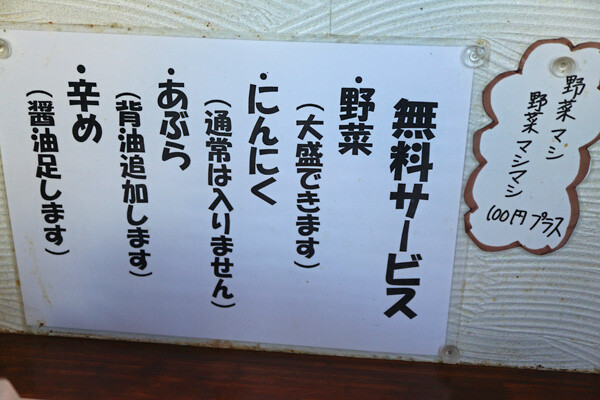 無料サービス
・野菜
(大盛できます)
・にんにく
(通常は入りません)
・あぶら
(背油追加します)
・辛め
(醤油足します)
野菜マシ
野菜マシマシ
100円プラス